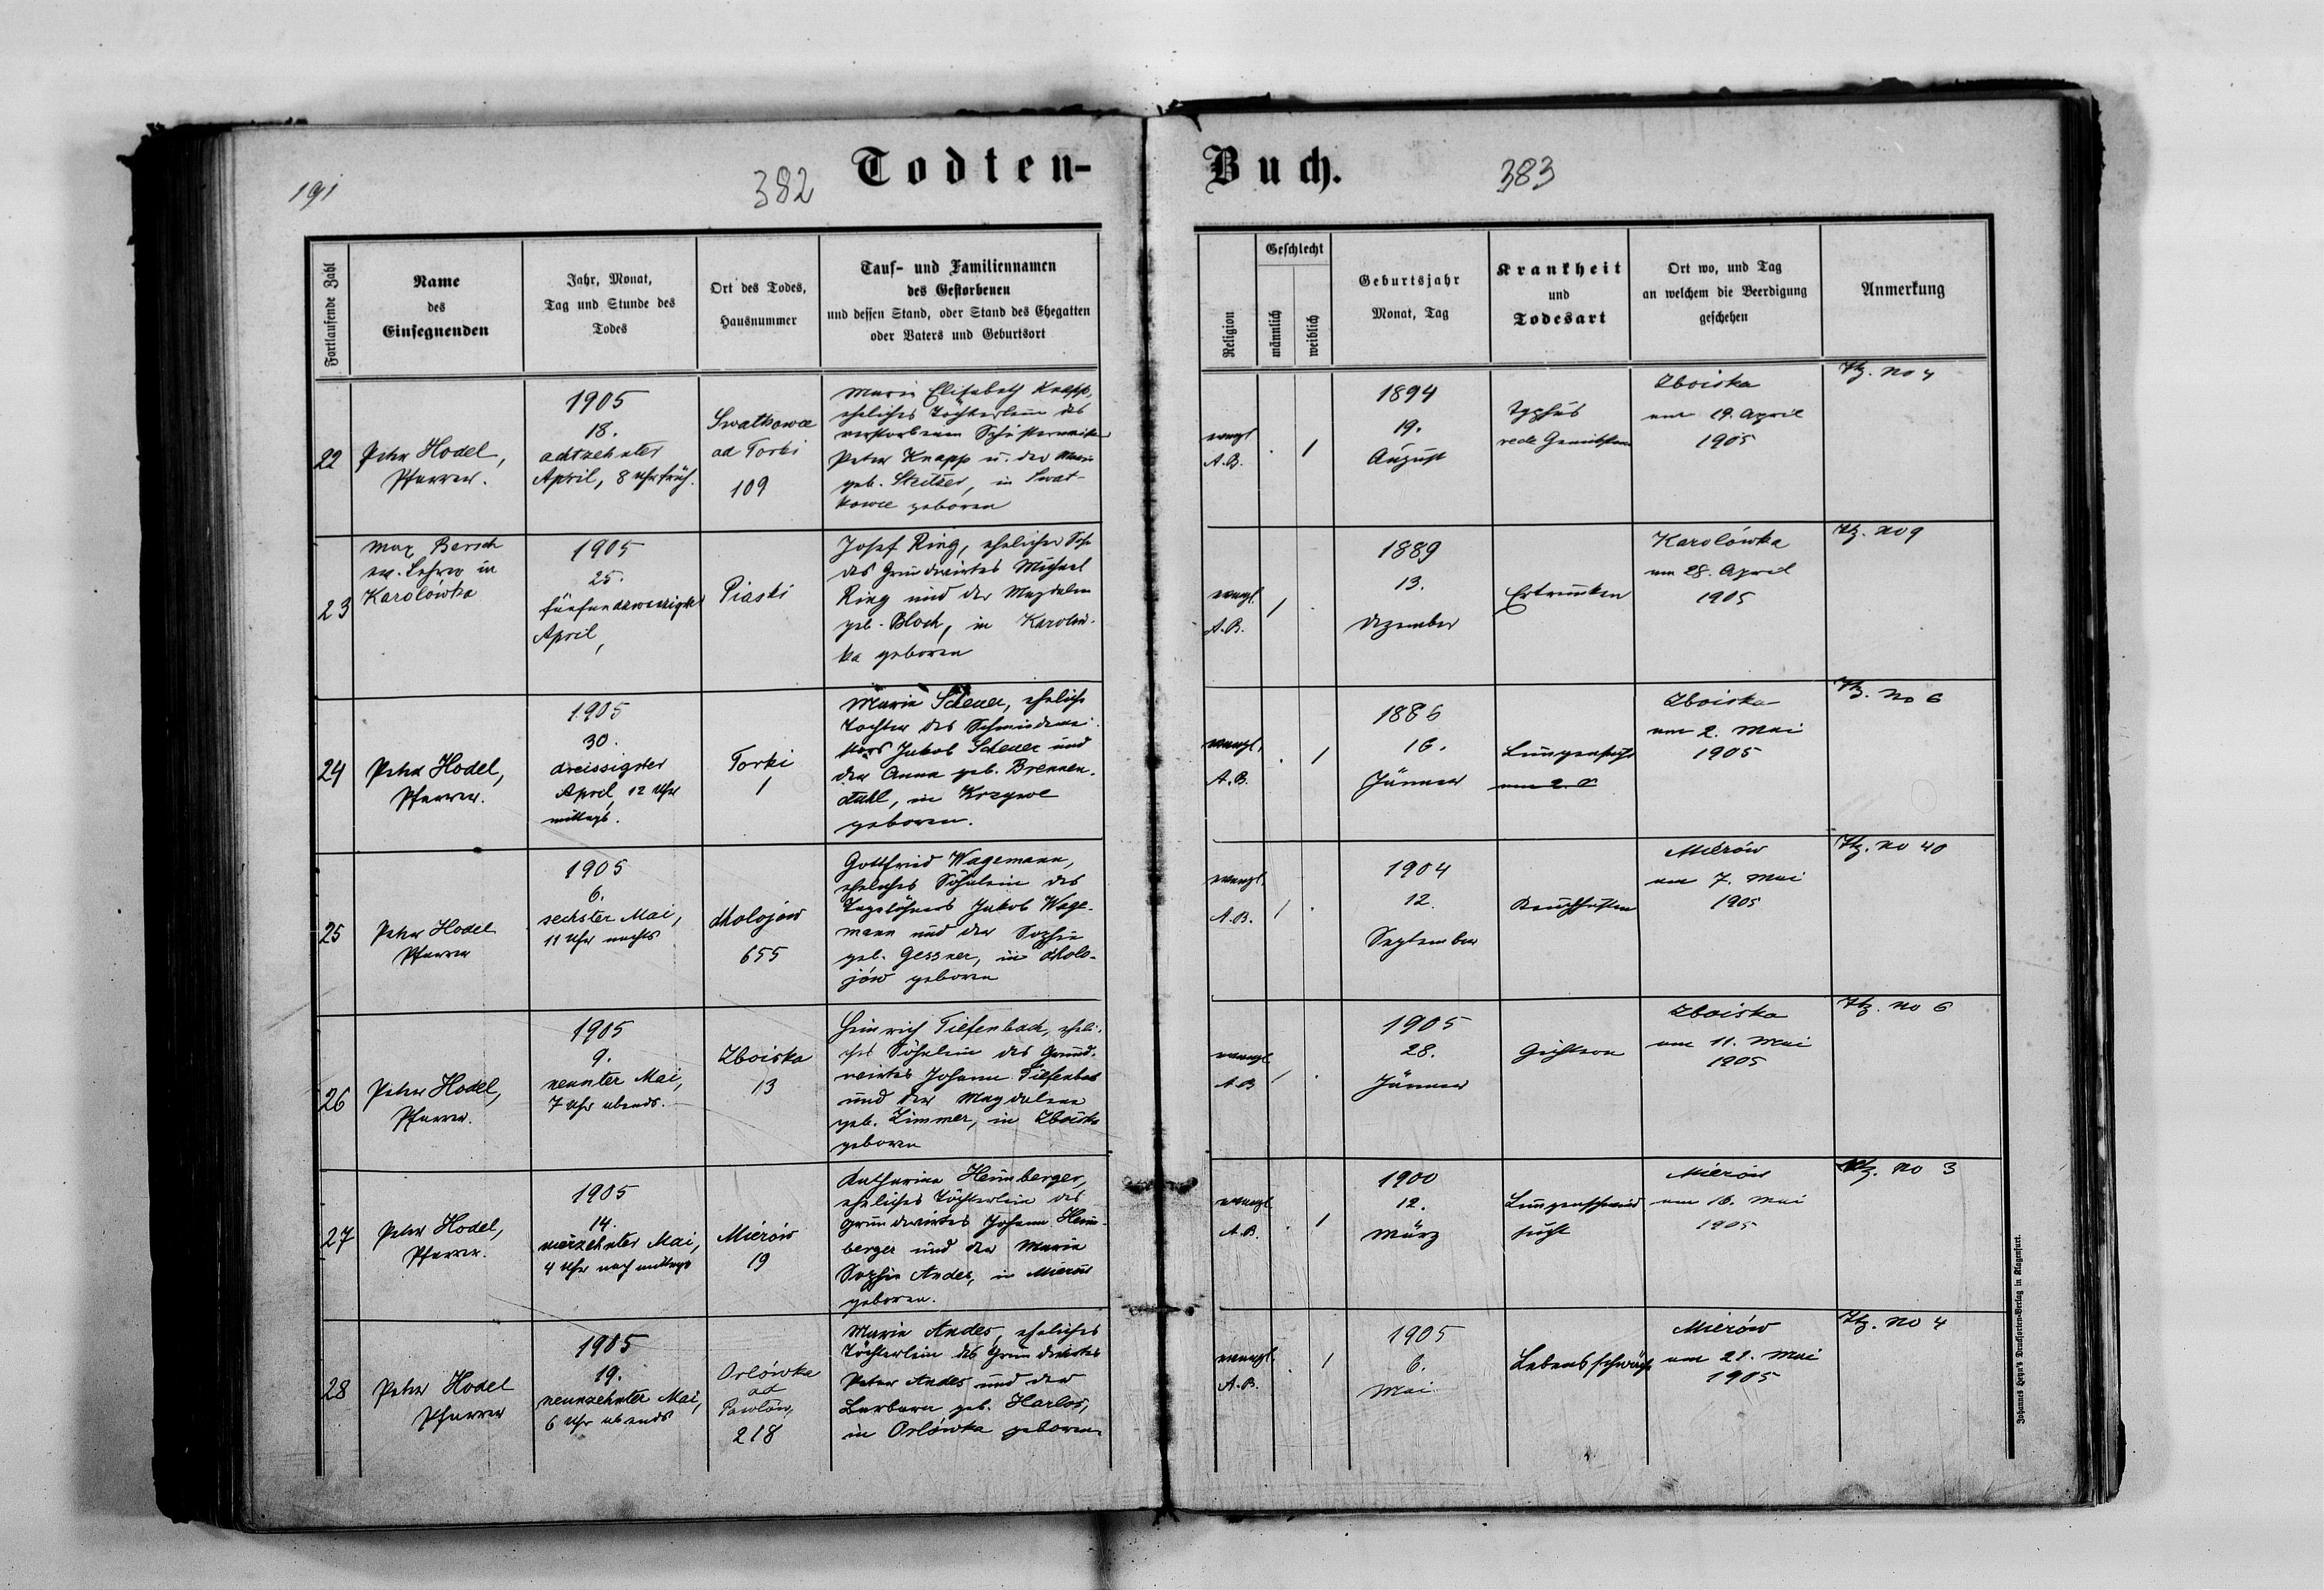 191
382
Todten-
Buch.
383
Fortlaufende Zahl
Name
des
Einsegnenden
Jahr, Monat,
Tag und Stunde des
Todes
Ort des Todes,
Hausnummer
Tauf- und Familiennamen
des Gestorbenen
und dessen Stand, oder Stand des Ehegatten
oder Vaters und Geburtsort
Religion
Geschlecht
männlich
weiblich
Geburtsjahr
Monat, Tag
Krankheit
und
Todesart
Ort wo, und Tag
an welchem die Beerdigung
geschehen
Anmerkung
22
Peter Hodel,
Pfarrer.
1905
18.
achtzehnter
April, 8 Uhr früh.
Swatkowce
ad Torki
109
Maria Elisabeth Knapp,
eheliches Töchterlein des
verstorbenen
Peter Knapp u. der Maria
geb. in Swat-
kowce geboren
evngl
A.B.
1
1894
19.
August
Typhus
Zboiska
am 19. April
1905
no 4
23
Max Bersch
ev. Lehrer in
Karolówka
1905
25.
fünfundzwanzigster
April,
Piaski
Josef Ring, ehelicher Sohn
des Grundwirtes Michael
Ring und der Magdalena
geb. Bloch, in Karolów-
ka geboren
evngl.
A.B.
1
1889
13.
Dezember
Ertrunken
Karolówka
am 28. April
1905
no 9
24
Peter Hodel,
Pfarrer.
1905
30.
dreissigster
April, 12 Uhr
mittags.
Torki
1
Maria Scheuer, eheliche
Tochter des Schmiedemei-
sters Jakob Scheuer und
der Anna geb. Brennen-
stuhl, in Krzywe
geboren.
evngl.
A.B.
1
1886
16.
Jänner
Lungensucht
Zboiska
am 2. Mai
1905
no 6
25
Peter Hodel
Pfarrer
1905
6.
sechster Mai,
11 Uhr nachts
Chołojów
655
Gottfried Wagemann,
eheliches Söhnlein des
Tagelöhners Jakob Wage-
mann und der Sophie
geb. Gessner, in Choło-
jów geboren
evngl.
A.B.
1
1904
12.
September
Keuchhusten
Mierów
am 7. Mai
1905
no 40
26
Peter Hodel,
Pfarrer.
1905
9.
neunter Mai,
7 Uhr abends.
Zboiska
13
Heinrich Tiefenbach, eheli-
ches Söhnlein des Grund-
wirtes Johann Tiefenbach
und der Magdalena
geb. Zimmer, in Zboiska
geboren
evngl
A.B.
1
1905
28.
Jänner
Zboiska
am 11. Mai
1905
no 6
27
Peter Hodel,
Pfarrer.
1905
14.
vierzehnter Mai,
4 Uhr nachmittags
Mierów
19
Katharina Heimberger,
eheliches Töchterlein des
Grundwirtes Johann Heim-
berger und der Maria
Sophie Andes, in Mierów
geboren.
evngl
A.B.
1
1900
12.
März
Lungenschwind
sucht
Mierów
am 16. Mai
1905
no 3
28
Peter Hodel
Pfarrer
1905
19.
neunzehnter Mai,
6 Uhr abends
Orlówka
ad
Pawłów,
218
Maria Andes, eheliches
Töchterlein des Grundwirtes
Peter Andes und der
Barbara geb. Harlos,
in Orlówka geboren.
evngl.
A.B.
1
1905
6.
Mai
Lebensschwäche
Mierów
am 21. Mai
1905
no 4
Johannes Heyn's Drucksorten-Verlag in Klagenfurt.